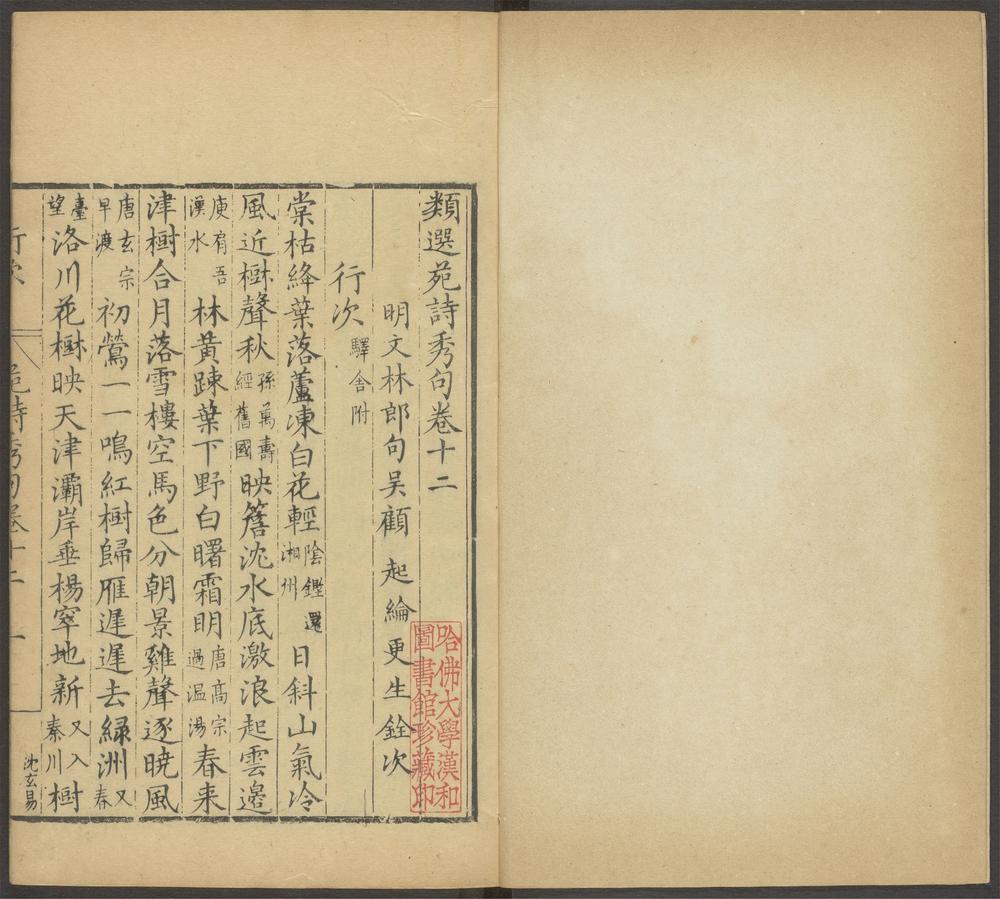 類選苑詩秀句卷十二
明文林郎句吴顧 起綸更生銓次
行次 驛舍附
棠枯絳葉落蘆凍白花輕 陰鏗還湘州 日斜山氣冷
風近樹聲秋 孫萬壽經舊國 映簷沈水底激浪起雲邊
庾肩吾漢水 林黄踈葉下野白曙霜明 唐高宗過温湯 春来
津樹合月落雪樓空馬色分朝景雞聲逐暁風
唐玄宗早渡 初鶯一一鳴紅樹歸雁遲遲去緑洲 又春
臺望 洛川花樹映天津灞岸垂楊窣地新 又入秦川 樹
沈玄易
行次
苑詩秀句卷十二
一
哈佛大學漢和
圖書館珍藏印